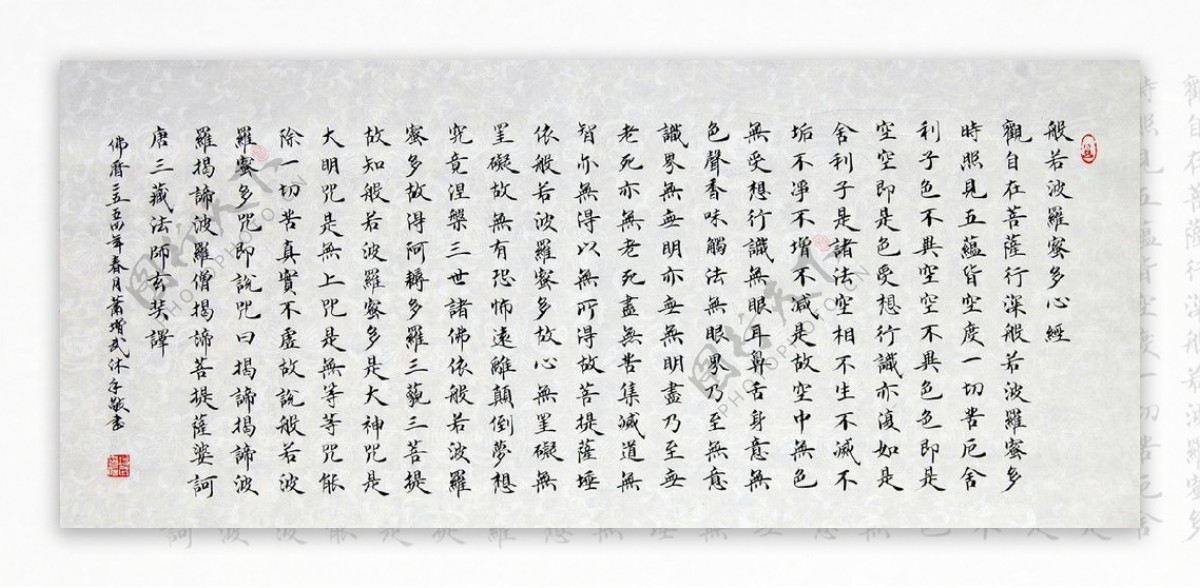 般若波羅蜜多心經
觀自在菩薩行深般若波羅蜜多
時照見五蘊皆空度一切苦厄舍
利子色不異空空不異色色即是
空空即是色受想行識亦復如是
舍利子是諸法空相不生不滅不
垢不淨不增不减是故空中無色
無受想行識無眼耳鼻舌身意無
色聲香味觸法無眼界乃至無意
識界無無明亦無無明盡乃至無
老死亦無老死盡無苦集滅道無
智亦無得以無所得故菩提薩埵
依般若波羅蜜多故心無罣礙無
罣礙故無有恐怖遠離顛倒夢想
究竟涅槃三世諸佛依般若波羅
蜜多故得阿耨多羅三藐三菩提
故知般若波羅蜜多是大神咒是
大明咒是無上咒是無等等咒能
除一切苦真實不虛故說般若波
羅蜜多咒即說咒曰揭諦揭諦波
羅揭諦波羅僧揭諦菩提薩婆訶
唐三藏法師玄奘譯
佛曆二五五四年春月蕭增武沐手敬書
图行天下
PHOTOPHOTO.CN
图行天下
PHOTOPHOTO.CN